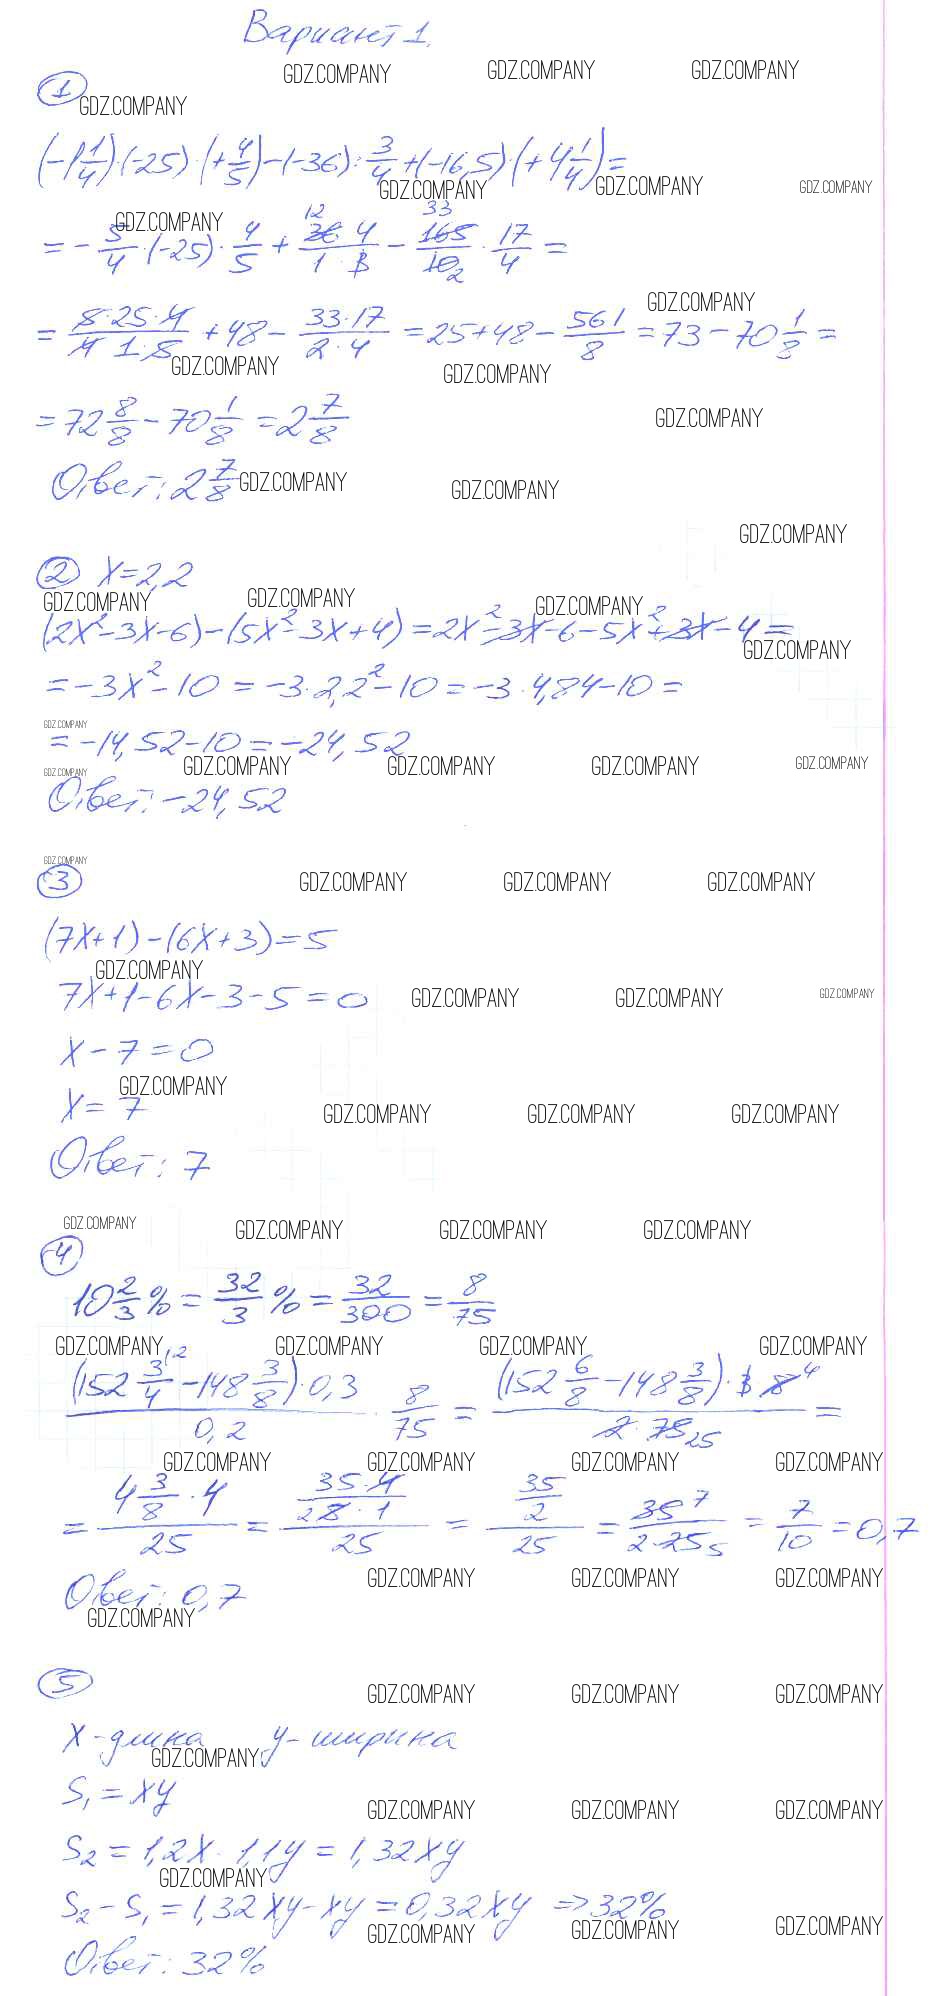 Вариант 1.
GDZ.COMPANY GDZ.COMPANY GDZ.COMPANY
① GDZ.COMPANY
(-1 1/4)·(-25)·(+4/5)-(-36):3/4+(-16,5)·(+4 1/4)=
GDZ.COMPANY GDZ.COMPANY GDZ.COMPANY
GDZ.COMPANY
= -5/4·(-25)·4/5+(36 12·4)/(1·3)-165 33/10 2·17/4=
GDZ.COMPANY
= (5·25·4)/(4·1·5)+48-(33·17)/(2·4)=25+48-561/8=73-70 1/8=
GDZ.COMPANY GDZ.COMPANY
=72 8/8-70 1/8=2 7/8
GDZ.COMPANY
Ответ: 2 7/8 GDZ.COMPANY GDZ.COMPANY
GDZ.COMPANY
② X=2,2
GDZ.COMPANY GDZ.COMPANY GDZ.COMPANY
(2X²-3X-6)-(5X²-3X+4)=2X²-3X-6-5X²+3X-4=
GDZ.COMPANY
=-3X²-10=-3·2,2²-10=-3·4,84-10=
GDZ.COMPANY
=-14,52-10=-24,52
GDZ.COMPANY GDZ.COMPANY GDZ.COMPANY GDZ.COMPANY GDZ.COMPANY
Ответ: -24,52
GDZ.COMPANY
③ GDZ.COMPANY GDZ.COMPANY GDZ.COMPANY
(7X+1)-(6X+3)=5
GDZ.COMPANY
7X+1-6X-3-5=0 GDZ.COMPANY GDZ.COMPANY GDZ.COMPANY
X-7=0
GDZ.COMPANY
X=7 GDZ.COMPANY GDZ.COMPANY GDZ.COMPANY
Ответ: 7
GDZ.COMPANY GDZ.COMPANY GDZ.COMPANY GDZ.COMPANY
④
10 2/3%=32/3%=32/300=8/75
GDZ.COMPANY GDZ.COMPANY GDZ.COMPANY GDZ.COMPANY
((152 3/4 ^(·2) -148 3/8)·0,3)/0,2·8/75=((152 6/8-148 3/8)·3·8 4)/(2·75 25)=
GDZ.COMPANY GDZ.COMPANY GDZ.COMPANY GDZ.COMPANY
=(4 3/8·4)/25=((35·4)/(2 8·1))/25=(35/2)/25=35 7/(2·25 5)=7/10=0,7
GDZ.COMPANY GDZ.COMPANY GDZ.COMPANY
Ответ: 0,7
GDZ.COMPANY
⑤ GDZ.COMPANY GDZ.COMPANY GDZ.COMPANY
X-длина y-ширина
GDZ.COMPANY
S₁=xy
GDZ.COMPANY GDZ.COMPANY GDZ.COMPANY
S₂=1,2X·1,1y=1,32xy
GDZ.COMPANY
S₂-S₁=1,32xy-xy=0,32xy ⇒32%
GDZ.COMPANY GDZ.COMPANY GDZ.COMPANY
Ответ: 32%